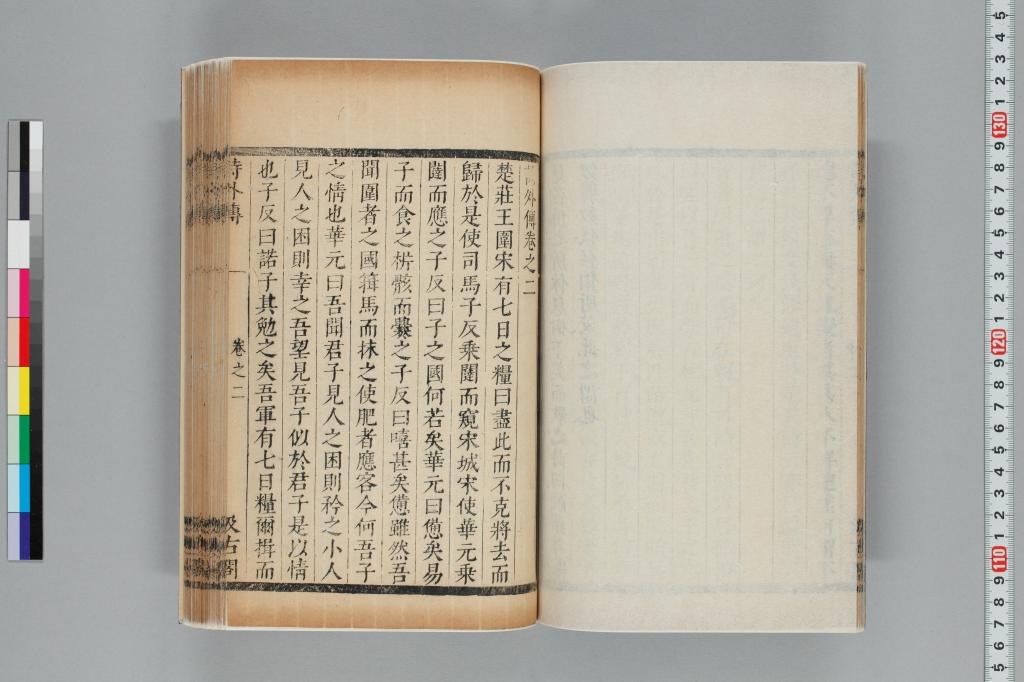 詩外傳卷之二
楚莊王圍宋有七日之糧曰盡此而不克將去而
歸於是使司馬子反乘闉而窺宋城宋使華元乘
闉而應之子反曰子之國何若矣華元曰憊矣易
子而食之析骸而爨之子反曰嘻甚矣憊雖然吾
聞圍者之國箝馬而抹之使肥者應客今何吾子
之情也華元曰吾聞君子見人之困則矜之小人
見人之困則幸之吾望見吾子似於君子是以情
也子反曰諾子其勉之矣吾軍有七日糧爾揖而
詩外傳
卷之二
汲古閣